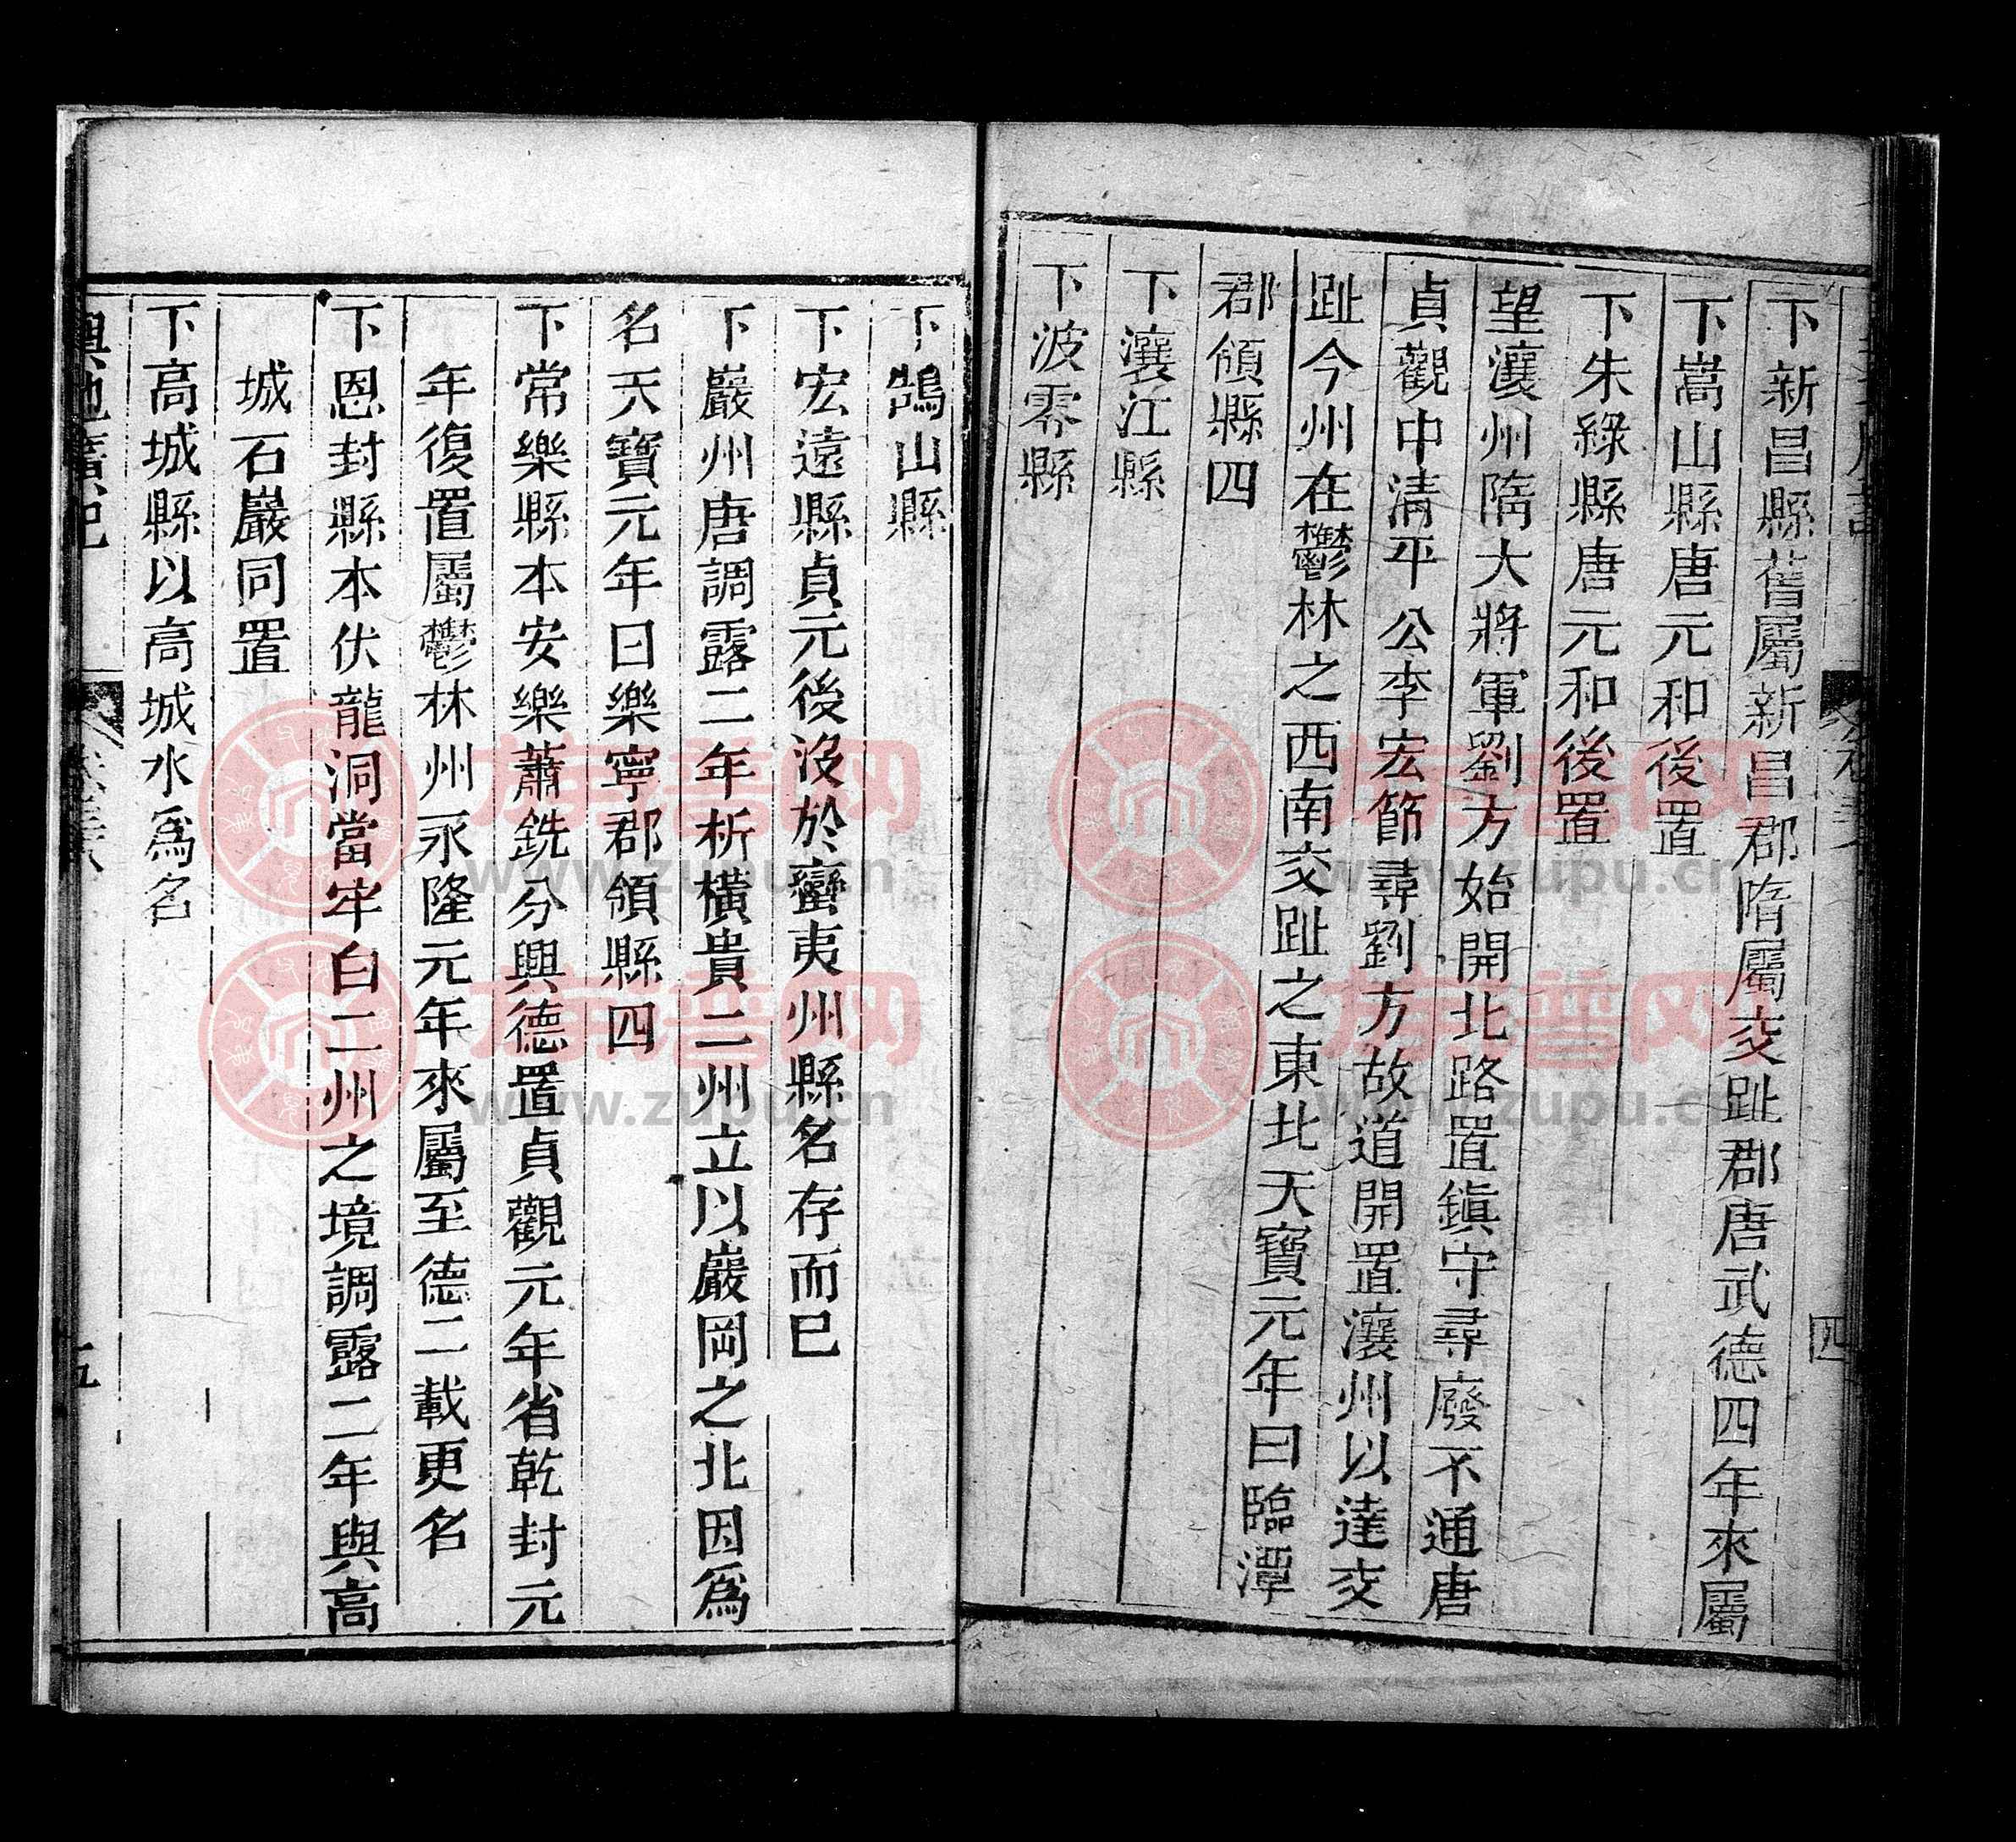 下新昌縣舊屬新昌郡隋屬交趾郡唐武德四年來屬
下嵩山縣唐元和後置
下朱綠縣唐元和後置
望瀼州隋大將軍劉方始開北路置鎮守尋廢不通唐
貞觀中清平公李宏節尋劉方故道開置瀼州以達交
趾今州在鬱林之西南交趾之東北天寶元年曰臨潭
郡領縣四
下瀼江縣
下波零縣
四
下鵠山縣
下宏遠縣貞元後沒於蠻夷州縣名存而已
下巖州唐調露二年析橫貴二州立以巖岡之北因爲
名天寶元年曰樂寧郡領縣四
下常樂縣本安樂蕭銑分興德置貞觀元年省乾封元
年復置屬鬱林州永隆元年來屬至德二載更名
下恩封縣本伏龍洞當牢白二州之境調露二年與高
城石巖同置
下高城縣以高城水爲名
輿地廣記
五
族谱网
www.zupu.cn
族谱网
www.zupu.cn
族谱网
www.zupu.cn
族谱网
www.zupu.cn